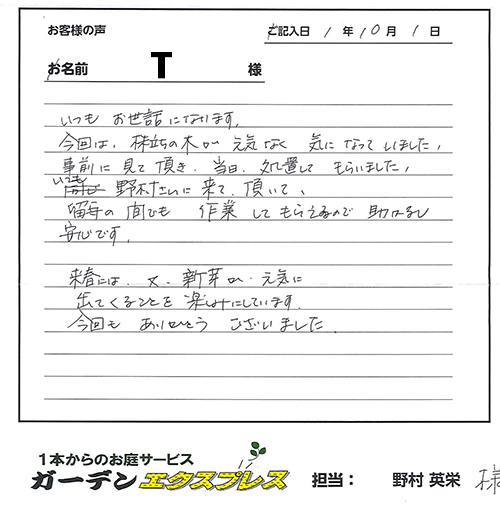 お客様の声
ご記入日 1年10月1日
お名前 T 様
いつも お世話になります。
今回は、株立ちの木が 元気なく 気になっていました。
事前に見て頂き、当日、処置して もらいました。
いつも 野村さんに来て、頂いて、
留守の間でも 作業してもらえるので 助かるし
安心です。
来春には、又、新芽が、元気に
出てくることを楽しみにしています。
今回も ありがとう ございました。
1本からのお庭サービス
ガーデンエクスプレス 担当： 野村 英栄 様